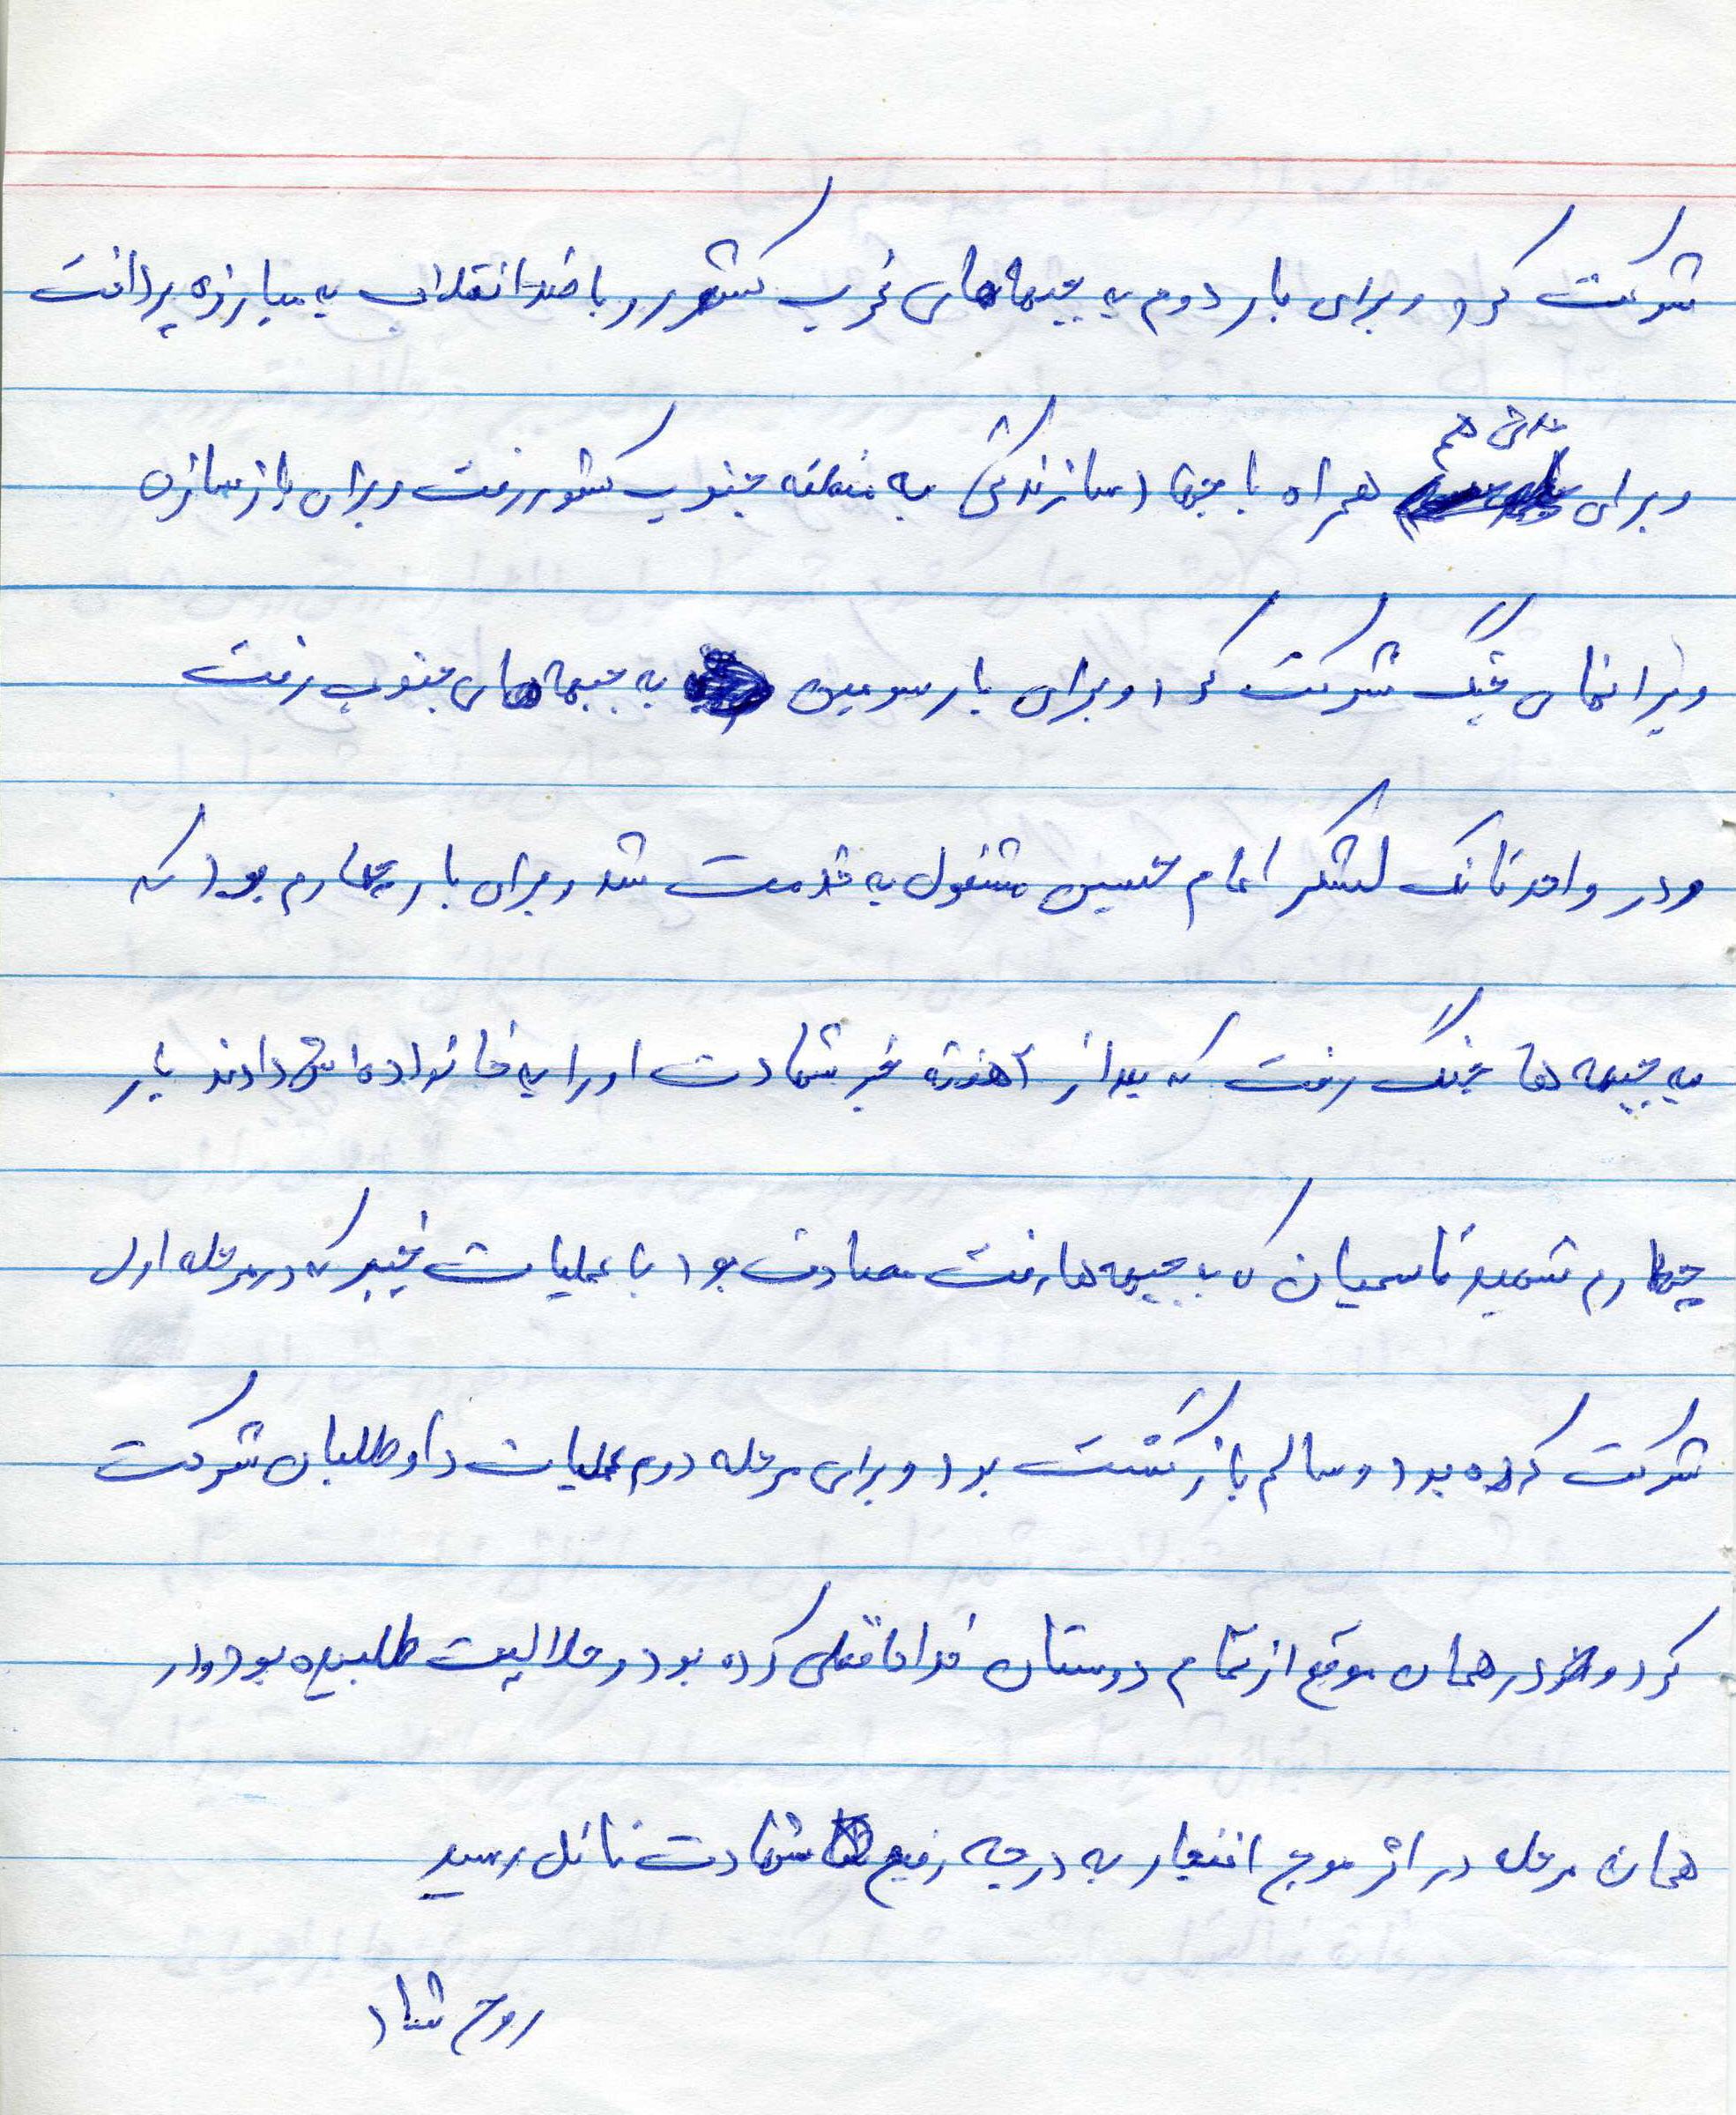 شرکت کرد و برای بار دوم به جبهه‌های غرب کشور و با ضد انقلاب به مبارزه پرداخت
و برای مدتی هم همراه با جهاد سازندگی به منطقه جنوب کشور رفت و برای بازسازی
ویرانه‌های جنگ شرکت کرد و برای بار سومین به جبهه‌های جنوب رفت
و در واحد تانک لشکر امام حسین مشغول به خدمت شد و برای بار چهارم بود که
به جبهه های جنگ رفت که بعد از ۲ هفته خبر شهادت او را به خانواده‌اش دادند بار
چهارم شهید قاسمیان که به جبهه ها رفت مصادف بود با عملیات خیبر که در مرحله اول
شرکت کرده بود و سالم بازگشت بود و برای مرحله دوم عملیات داوطلبان شرکت
کرد و در همان موقع از تمام دوستان خداحافظی کرده بود و حلالیت طلبیده بود و در
همان مرحله در اثر موج انفجار به درجه رفیع شهادت نائل رسید
روحش شاد